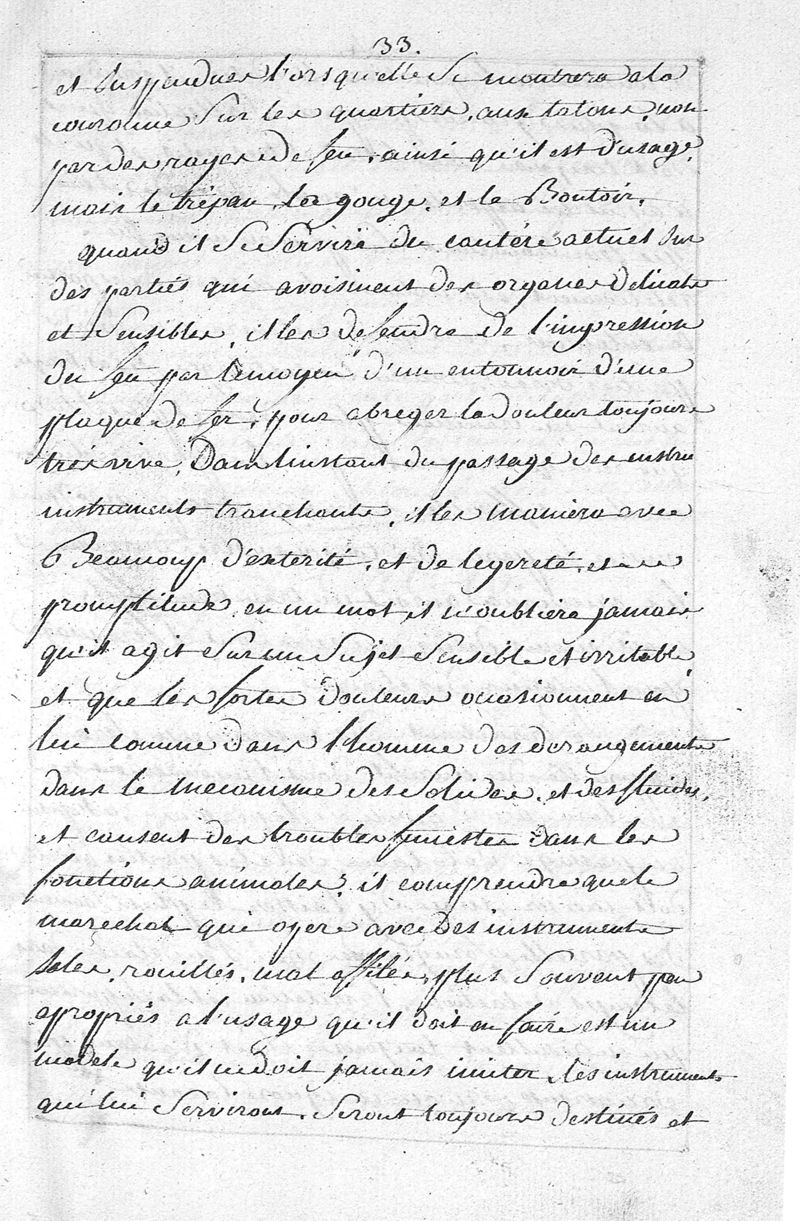 33.
et suspendues lorsqu'elle se montrera a la
couronne sur les quartiers, aux talons, non
par des rayes de feu, ainsi qu'il est d'usage,
mais le trépan, la gouge, et le Boutoir,
quand il se servira du cautére actuel sur
des parties qui avoisinent des organes delicats
et sensibles, il les defendra de l'impression
du feu par le moyen d'un entonnoir d'une
plaque de fer, pour abreger la douleur toujours
trés vive, Dans l'instant du passage des instru
instruments tranchants, il les maniera avec
Beaucoup d'exterité, et de legereté, et
promptitude, en un mot, il n'oubliera jamais
qu'il agit sur un sujet sensible et irritable
et que les fortes douleurs ocasionnent en
lui comme dans l'homme des derangements
dans le mecanisme des solides, et des fluides,
et causent des troubles funestes dans les
fonctions animales, il comprendra que le
marechal qui opere avec des instruments
sales, rouillés, mal affilés, plus souvent peu
apropriés a l'usage qu'il doit en faire est un
modele qu'il ne doit jamais imiter, les instruments
qui lui serviront, seront toujours destinés et